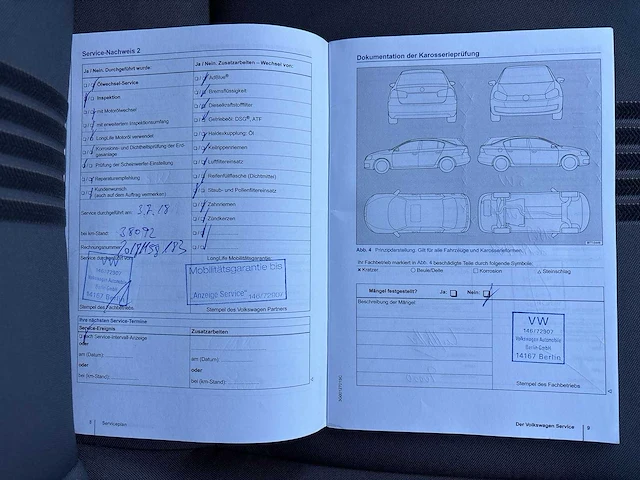 Service-Nachweis 2
Ja / Nein. Durchgeführt wurde:
Ölwechsel-Service
Inspektion
mit Motorölwechsel
mit erweitertem Inspektionsumfang
LongLife Motoröl verwendet
Korrosions- und Dichtheitsprüfung der Erd-
gasanlage
Prüfung der Scheinwerfer-Einstellung
Reparaturempfehlung
Kundenwunsch
(auch auf dem Auftrag vermerken)
Service durchgeführt am: 3.7.18
bei km-Stand: 38092
Rechnungsnummer:
Service durchgeführt von:
VW
146/72907
14167 Berlin
Stempel des Fachbetriebs
Ja / Nein. Zusatzarbeiten – Wechsel von:
AdBlue®
Bremsflüssigkeit
Dieselkraftstofffilter
Getriebeöl: DSG®, ATF
Haldexkupplung: Öl
Keilrippenriemen
Luftfiltereinsatz
Reifenfüllflasche (Dichtmittel)
Staub- und Pollenfiltereinsatz
Zahnriemen
Zündkerzen
LongLife Mobilitätsgarantie:
Mobilitätsgarantie bis
Anzeige Service" 146/72907
Stempel des Volkswagen Partners
Ihre nächsten Service-Termine
Service-Ereignis
nach Service-Intervall-Anzeige
oder
am (Datum):
oder
bei (km-Stand):
Zusatzarbeiten
am (Datum):
oder
bei (km-Stand):
8 Serviceplan
Dokumentation der Karosserieprüfung
Abb. 4 Prinzipdarstellung. Gilt für alle Fahrzeuge und Karosserieformen.
Ihr Fachbetrieb markiert in Abb. 4 beschädigte Teile durch folgende Symbole:
× Kratzer ○ Beule/Delle □ Korrosion △ Steinschlag
Mängel festgestellt? Ja: Nein:
Beschreibung der Mängel
VW
146/72907
Volkswagen Automobile
Berlin GmbH
14167 Berlin
Stempel des Fachbetriebs
Der Volkswagen Service 9